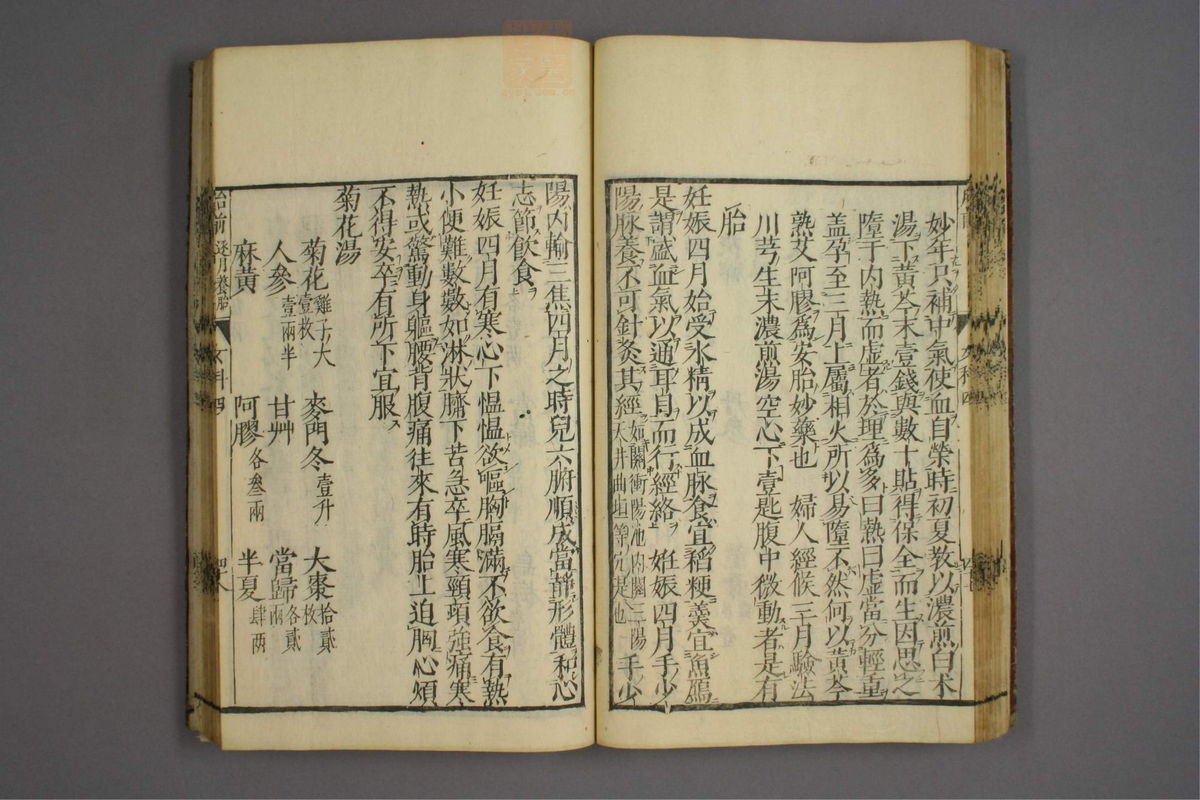 妙年只補中氣使血自榮時初夏教以濃煎白朮
湯下黃芩末壹錢與數十貼得保全而生因思之
墮于内熱而虛者於理爲多曰熱曰虛當分輕重
盖孕至三月上屬相火所以易墮不然何以黃芩
熟艾阿膠爲安胎妙藥也　婦人經候三月驗法
川芎生末濃煎湯空心下壹匙腹中微動者是有
胎
妊娠四月始受水精以成血脉食宜稻粳羹宜魚鴈
是謂盛血氣以通耳目而行經絡　妊娠四月手少
陽脉養不可針灸其經如關衝陽池内關三陽天井曲垣等穴是也手少
陽内輸三焦四月之時兒六腑順成當靜形體和心
志節飲食
妊娠四月有寒心下慍慍欲嘔胸膈滿不欲食有熱
小便難數數如淋狀臍下苦急卒風寒頸項強痛寒
熱或驚動身軀腰背腹痛往來有時胎上迫胸心煩
不得安卒有所下宜服
菊花湯
菊花雞子大壹枚　麥門冬壹升　大棗拾貳枚
人參壹兩半　甘艸　當歸各貳兩
麻黃　阿膠各叄兩　半夏肆兩
胎前　逐月養胎　女科四